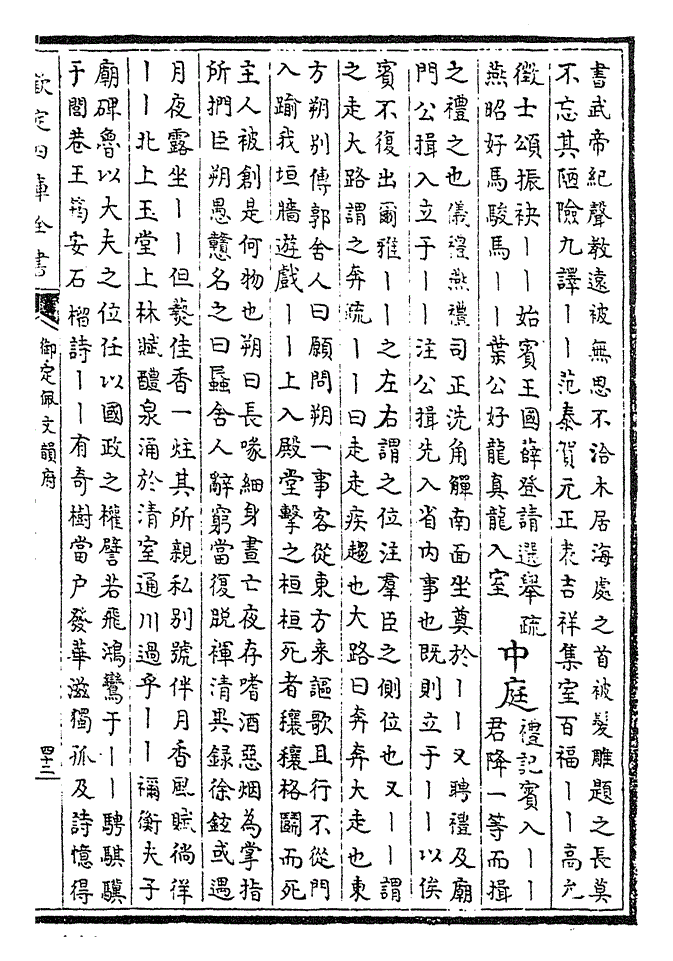 書武帝紀聲教遠被無思不洽木居海處之首被髮雕題之長莫
不忘其陋險九譯丨丨范泰賀元正表吉祥集室百福丨丨高允
徵士頌振袂丨丨始賓王國薛登請選舉疏
燕昭好馬駿馬丨丨葉公好龍真龍入室
中庭
禮記賓入丨丨
君降一等而揖
之禮之也儀禮燕禮司正洗角觶南面坐奠於丨丨又聘禮及廟
門公揖入立于丨丨注公揖先入省内事也既則立于丨丨以俟
賓不復出爾雅丨丨之左右謂之位注羣臣之側位也又丨丨謂
之走大路謂之奔疏丨丨曰走走疾趨也大路曰奔奔大走也東
方朔别傳郭舍人曰願問朔一事客從東方来謳歌且行不從門
入踰我垣牆遊戲丨丨上入殿堂擊之桓桓死者穰穰格鬭而死
主人被創是何物也朔曰長喙細身晝亡夜存嗜酒惡烟為掌指
所捫臣朔愚戇名之曰蟁舍人辭窮當復脱褌清異録徐鉉或遇
月夜露坐丨丨但爇佳香一炷其所親私别號伴月香風賦徜徉
丨丨北上玉堂上林賦醴泉涌於清室通川過乎丨丨禰衡夫子
廟碑魯以大夫之位任以國政之權譬若飛鴻鸞于丨丨騁騏驥
于閭巷王筠安石榴詩丨丨有奇樹當户發華滋獨孤及詩憶得
欽定四庫全書
御定佩文韻府
四十二